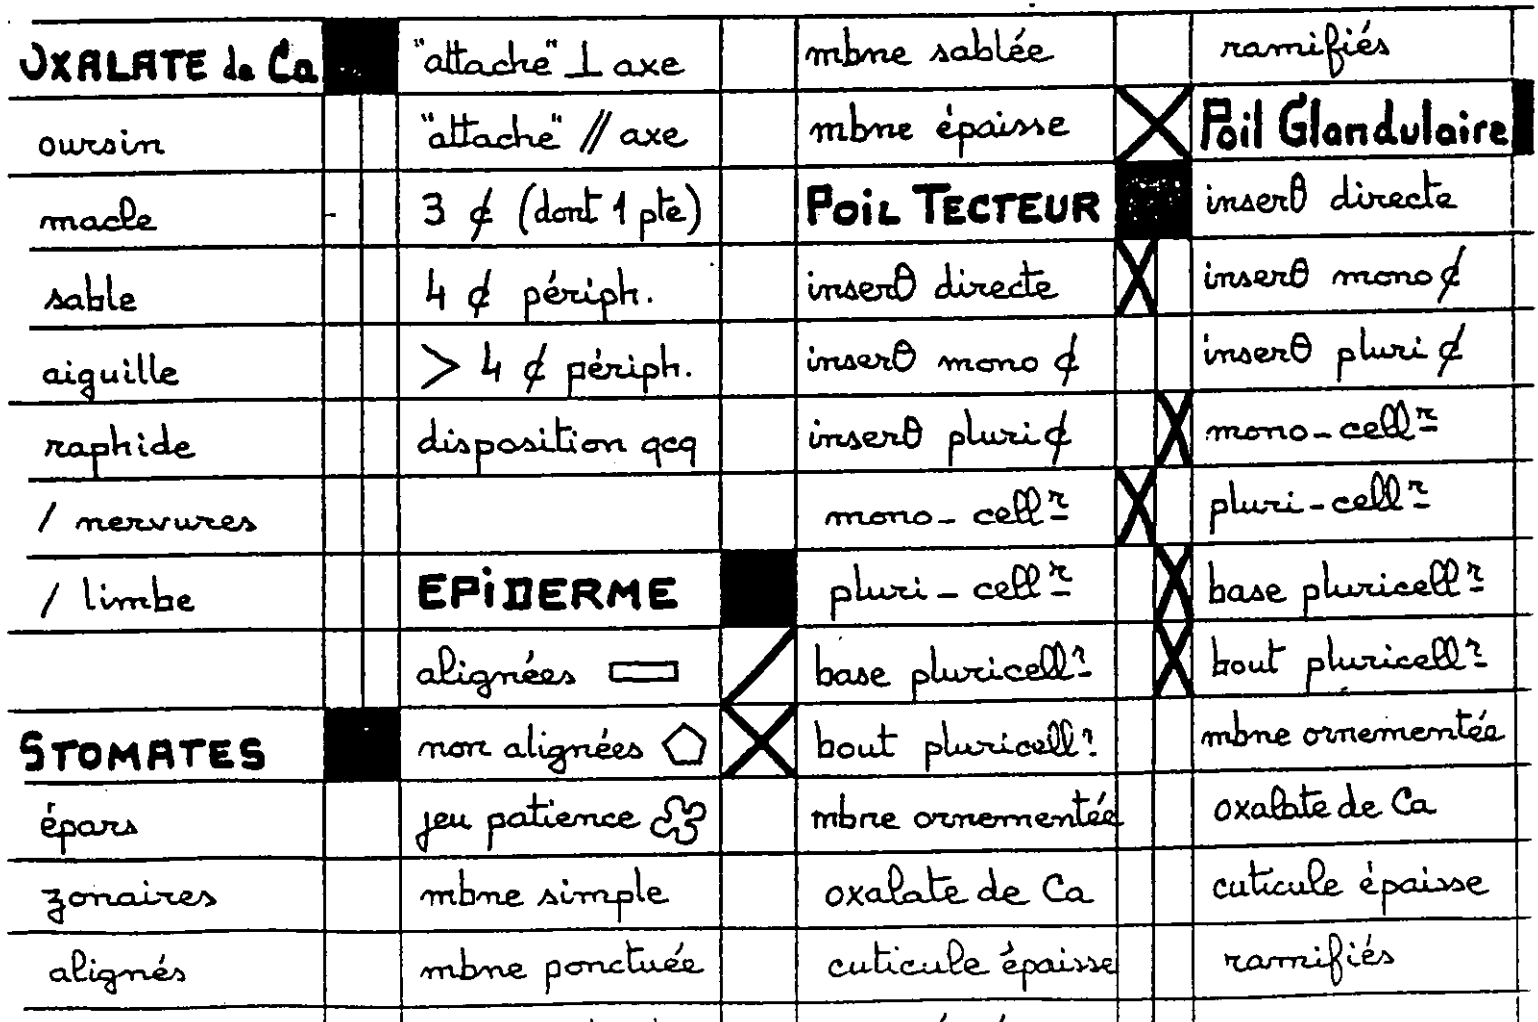 OXALATE de Ca
oursin
macle
sable
aiguille
raphide
/ nervures
/ limbe
STOMATES
épars
zonaires
alignés
"attache" ⊥ axe
"attache" // axe
3 ¢ (dont 1 pte)
4 ¢ périph.
> 4 ¢ périph.
disposition qcq
EPIDERME
alignées
non alignées
jeu patience
mbne simple
mbne ponctuée
mbne sablée
mbne épaisse
POIL TECTEUR
inserθ directe
inserθ mono ¢
inserθ pluri ¢
mono-cellʳ
pluri-cellʳ
base pluricellʳ
bout pluricellʳ
mbne ornementée
oxalate de Ca
cuticule épaisse
ramifiés
Poil Glandulaire
inserθ directe
inserθ mono ¢
inserθ pluri ¢
mono-cellʳ
pluri-cellʳ
base pluricellʳ
bout pluricellʳ
mbne ornementée
oxalate de Ca
cuticule épaisse
ramifiés